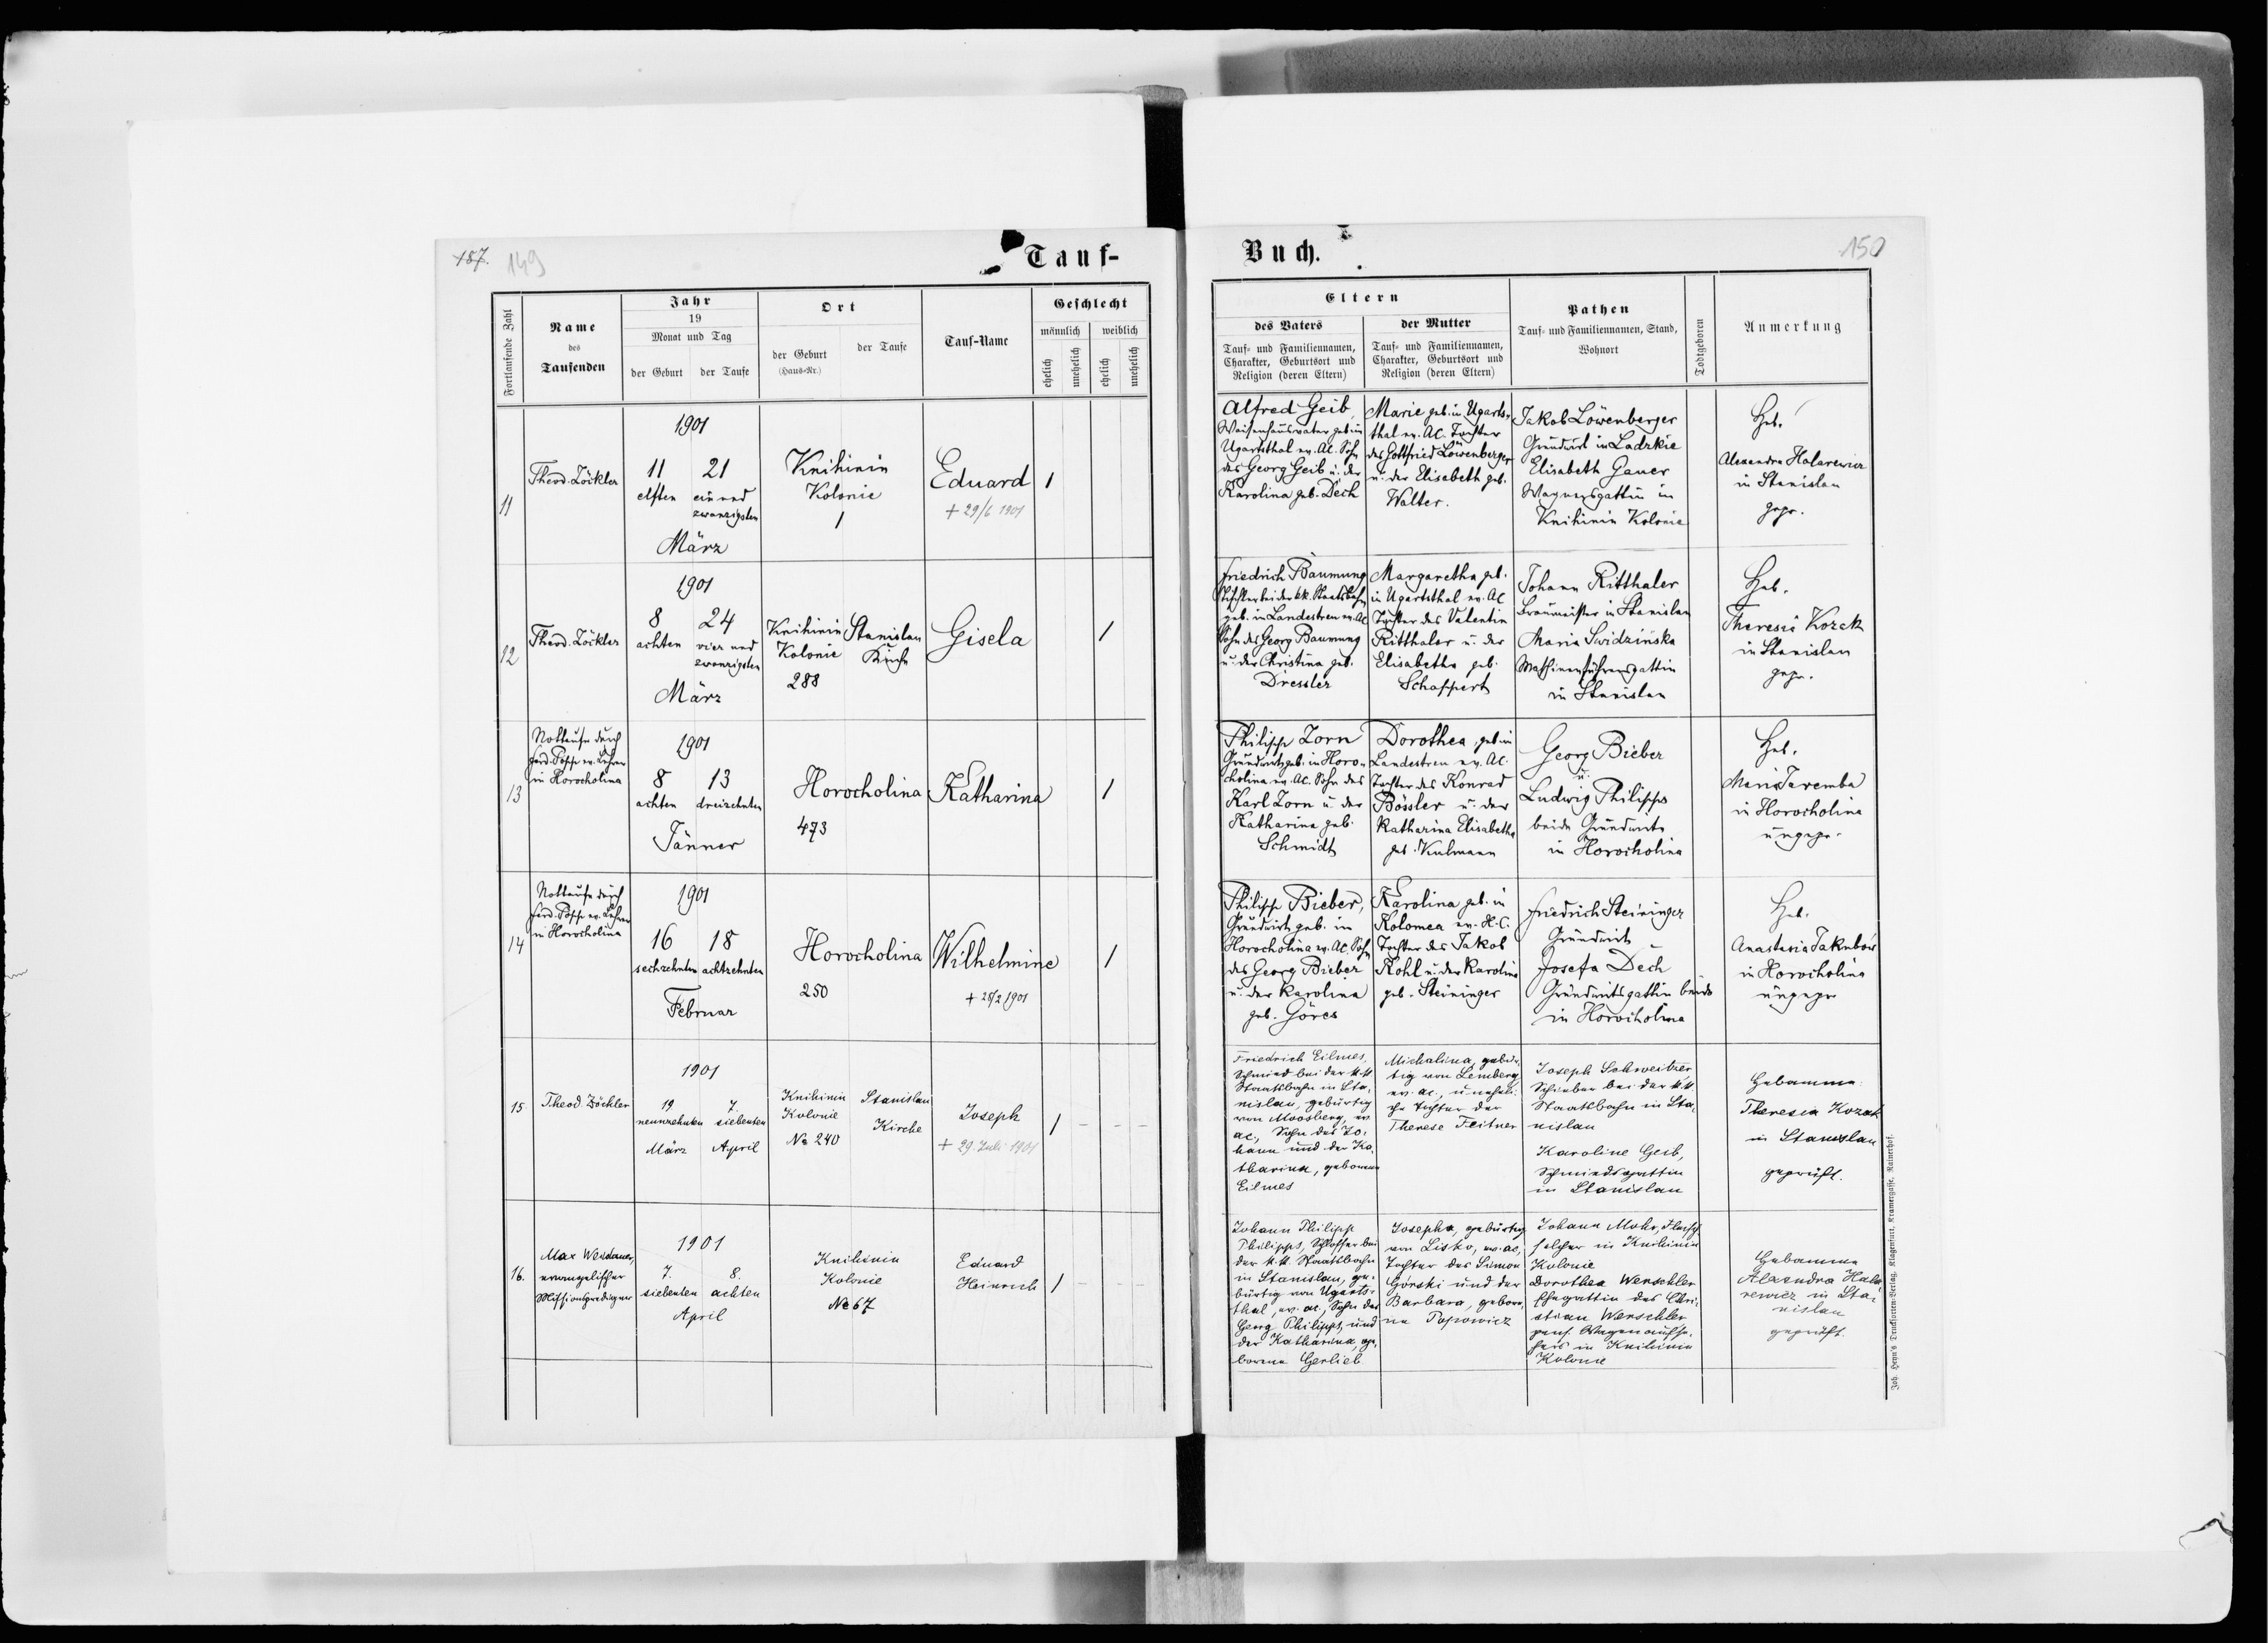 187.
149
Tauf-
Fortlaufende Zahl
Name
des
Taufenden
Jahr
19
Monat und Tag
der Geburt
der Taufe
Ort
der Geburt
(Haus-Nr.)
der Taufe
Tauf-Name
Geschlecht
männlich
weiblich
ehelich
unehelich
ehelich
unehelich
11
Theod. Zöckler
1901
11 21
elften ein und
zwanzigsten
März
Knihinin
Kolonie
1
Eduard
+ 29/6 1901
1
12
Theod. Zöckler
1901
8 24
achten vier und
zwanzigsten
März
Knihinin
Kolonie
288
Stanislau
Kirche
Gisela
1
13
Nottaufe durch
Ferd. Posse ev. Lehrer
in Horocholina
1901
8 13
achten dreizehnten
Jänner
Horocholina
473
Katharina
1
14
Nottaufe durch
Ferd. Posse ev. Lehrer
in Horocholina
1901
16 18
sechzehnten achtzehnten
Februar
Horocholina
250
Wilhelmine
+ 28/2 1901
1
15.
Theod. Zöckler
1901
19 7.
neunzehnten siebenten
März April
Knihinin
Kolonie
No 240
Stanislau
Kirche
Joseph
+ 29. Juli 1901
1
16.
Max Weidauer,
evangelischer
Missionsprediger
1901
7. 8.
siebenten achten
April
Knihinin
Kolonie
No 67
Eduard
Heinrich
1
Buch.
150
Eltern
des Vaters
Tauf- und Familiennamen,
Charakter, Geburtsort und
Religion (deren Eltern)
der Mutter
Tauf- und Familiennamen,
Charakter, Geburtsort und
Religion (deren Eltern)
Pathen
Tauf- und Familiennamen, Stand,
Wohnort
Todtgeboren
Anmerkung
Alfred Geib,
Waisenhausvater geb. in
Ugartsthal ev. AC. Sohn
des Georg Geib u. der
Karolina geb. Dech
Marie geb. in Ugarts-
thal ev. AC. Tochter
des Gottfried Löwenberger
u. der Elisabeth geb.
Walter.
Jakob Löwenberger
Grundwirt in Ladzkie
Elisabeth Gauer
Wagnersgattin in
Knihinin Kolonie
Heb.
Alexandra Holarewicz
in Stanislau
gepr.
Friedrich Baumung
Tischler bei der kk. Staatsbahn
geb. in Landestreu ev. AC
Sohn des Georg Baumung
u. der Christina geb.
Dressler
Margaretha geb.
in Ugartsthal ev. AC
Tochter des Valentin
Ritthaler u. der
Elisabetha geb.
Schappert
Johann Ritthaler
Braumeister in Stanislau
Maria Swidzińska
Maschinenführersgattin
in Stanislau
Heb.
Theresia Kozak
in Stanislau
gepr.
Philipp Zorn
Grundwirt geb. in Horo-
cholina ev. AC. Sohn des
Karl Zorn u. der
Katharina geb.
Schmidt
Dorothea, geb. in
Landestreu ev. AC.
Tochter des Konrad
Bössler u. der
Katharina Elisabetha
geb. Kulmann
Georg Bieber
u.
Ludwig Philipps
beide Grundwirte
in Horocholina
Heb.
Maria Taremba
in Horocholina
ungepr.
Philipp Bieber,
Grundwirt geb. in
Horocholina ev. AC. Sohn
des Georg Bieber
u. der Karolina
geb. Göres
Karolina geb. in
Kolomea ev. H.C.
Tochter des Jakob
Kohl u. der Karolina
geb. Steininger
Friedrich Steininger
Grundwirt
Josefa Dech
Grundwirtsgattin beide
in Horocholina
Heb.
Anastasia
in Horocholina
ungepr
Friedrich Eilmes,
Schmied bei der k.k.
Staatsbahn in Sta-
nislau, gebürtig
von Moosberg, ev.
ac., Sohn des Jo-
hann und der Ka-
tharina, geborenen
Eilmes
Michalina, gebür-
tig von Lemberg,
ev. ac., uneheli-
che Tochter der
Therese Feitner
Joseph Schweitzer
Schieber bei der k.k.
Staatsbahn in Sta-
nislau
Karoline Geib,
Schmiedsgattin
in Stanislau
Hebamme:
Theresia Kozak
in Stanislau
geprüft.
Johann Philipp
Philipps, Schlosser bei
der k.k. Staatsbahn
in Stanislau, ge-
bürtig von Ugarts-
thal, ev. ac., Sohn des
Georg Philipps, und
der Katharina, ge-
borene Gerlieb
Josepha, gebürtig
von Lisko, ev. ac.,
Tochter des Simon
Górski und der
Barbara, gebore-
ne Popowicz
Johann Mohr, Fleisch-
selcher in Knihinin
Kolonie
Dorothea Werschler
Ehegattin des Chri-
stian Werschler
pens. Wagenaufse-
hers in Knihinin
Kolonie
Hebamme
Alexandra Hola-
rewicz in Sta-
nislau
geprüft.
Joh. Heyn's Drucksorten-Verlag, Klagenfurt, Kramergasse, Rainerhof.